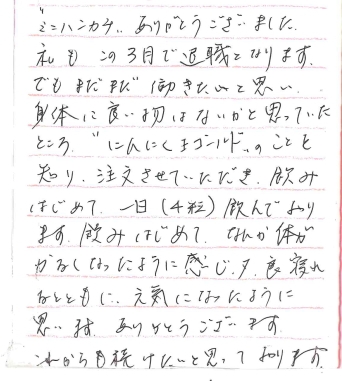 "ミニハンカチ" ありがとうございました.
私も この3月で退職となります.
でも まだまだ 働きたいと思い.
身体に良い物はないかと思っていた
ところ. "にんにく玉ゴールド"のことを
知り. 注文させていただき. 飲み
はじめて. 一日(4粒)飲んでおり
ます. 飲みはじめて. なんか体が
かるくなったように感じ. 夕. 良く寝れ
るとともに. 元気になったように
思います. ありがとうございます.
これからも続けたいと思っております.